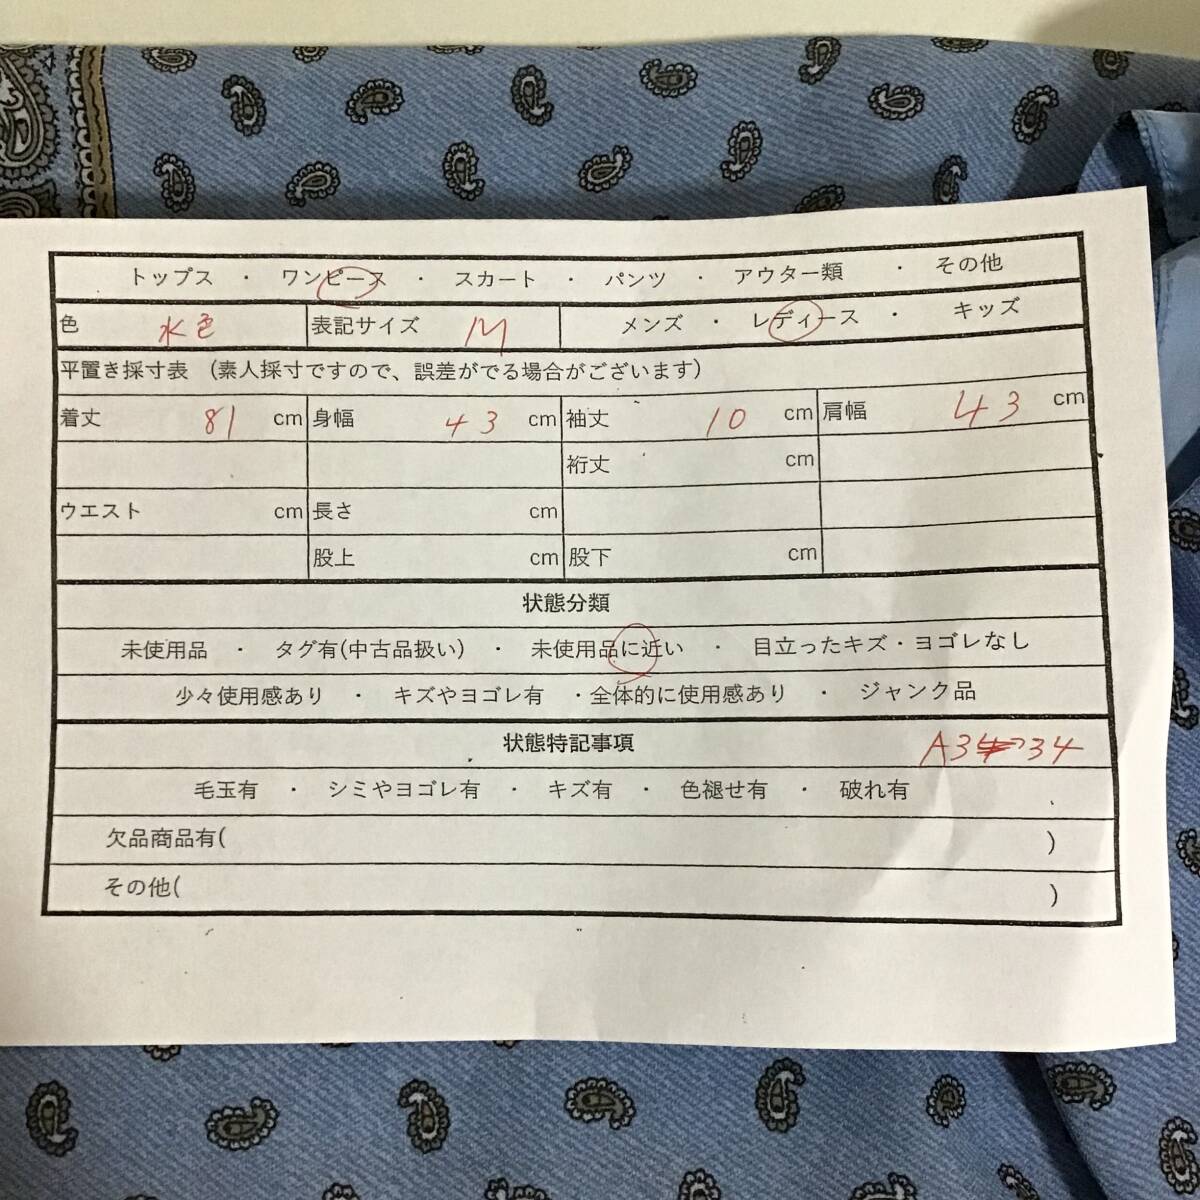 トップス ・ ワンピース ・ スカート ・ パンツ ・ アウター類 ・ その他
色 水色 表記サイズ M メンズ ・ レディース ・ キッズ
平置き採寸表 (素人採寸ですので、誤差がでる場合がございます)
着丈 81 cm 身幅 43 cm 袖丈 10 cm 肩幅 43 cm
裄丈 cm
ウエスト cm 長さ cm
股上 cm 股下 cm
状態分類
未使用品 ・ タグ有(中古品扱い) ・ 未使用品に近い ・ 目立ったキズ・ヨゴレなし
少々使用感あり ・ キズやヨゴレ有 ・全体的に使用感あり ・ ジャンク品
状態特記事項
毛玉有 ・ シミやヨゴレ有 ・ キズ有 ・ 色褪せ有 ・ 破れ有
欠品商品有( )
その他( )